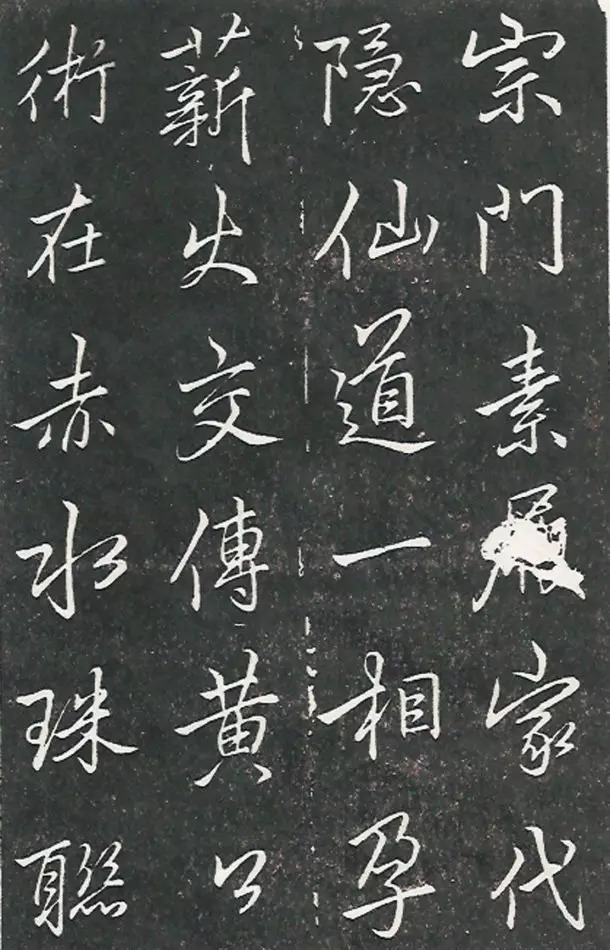 宗門素家代
隐仙道一相孕
薪火交傳黄公
術在赤水珠聯